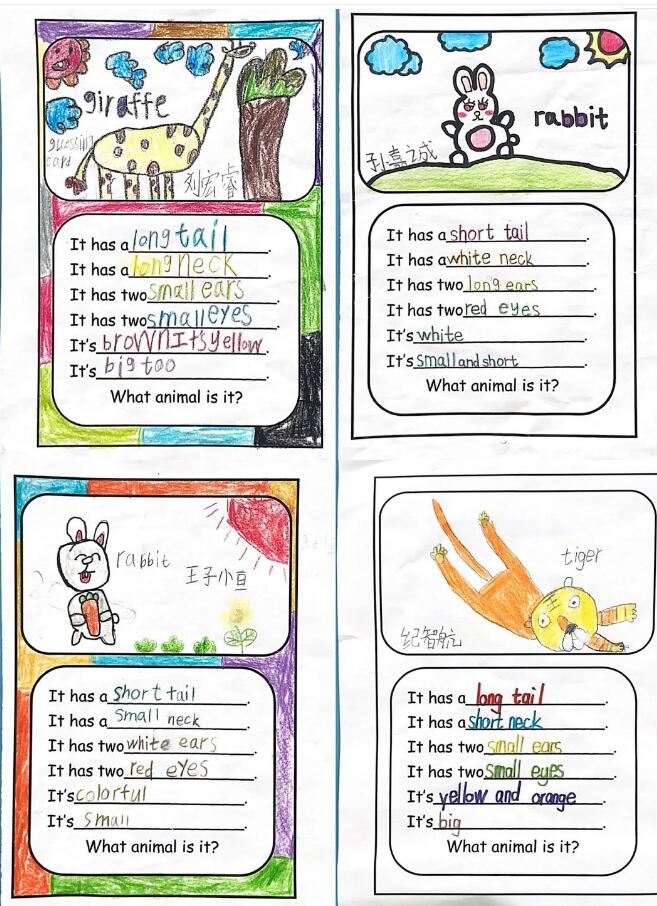 giraffe
guessing
card
刘宏睿
It has a long tail.
It has a long neck.
It has two small ears.
It has two small eyes.
It's brown It's yellow.
It's big too.
What animal is it?
rabbit
孙嘉之成
It has a short tail.
It has a white neck.
It has two long ears.
It has two red eyes.
It's white.
It's small and short.
What animal is it?
rabbit
王子小亘
It has a short tail.
It has a small neck.
It has two white ears.
It has two red eyes.
It's colorful.
It's small.
What animal is it?
tiger
纪智航
王
It has a long tail.
It has a short neck.
It has two small ears.
It has two small eyes.
It's yellow and orange.
It's big.
What animal is it?